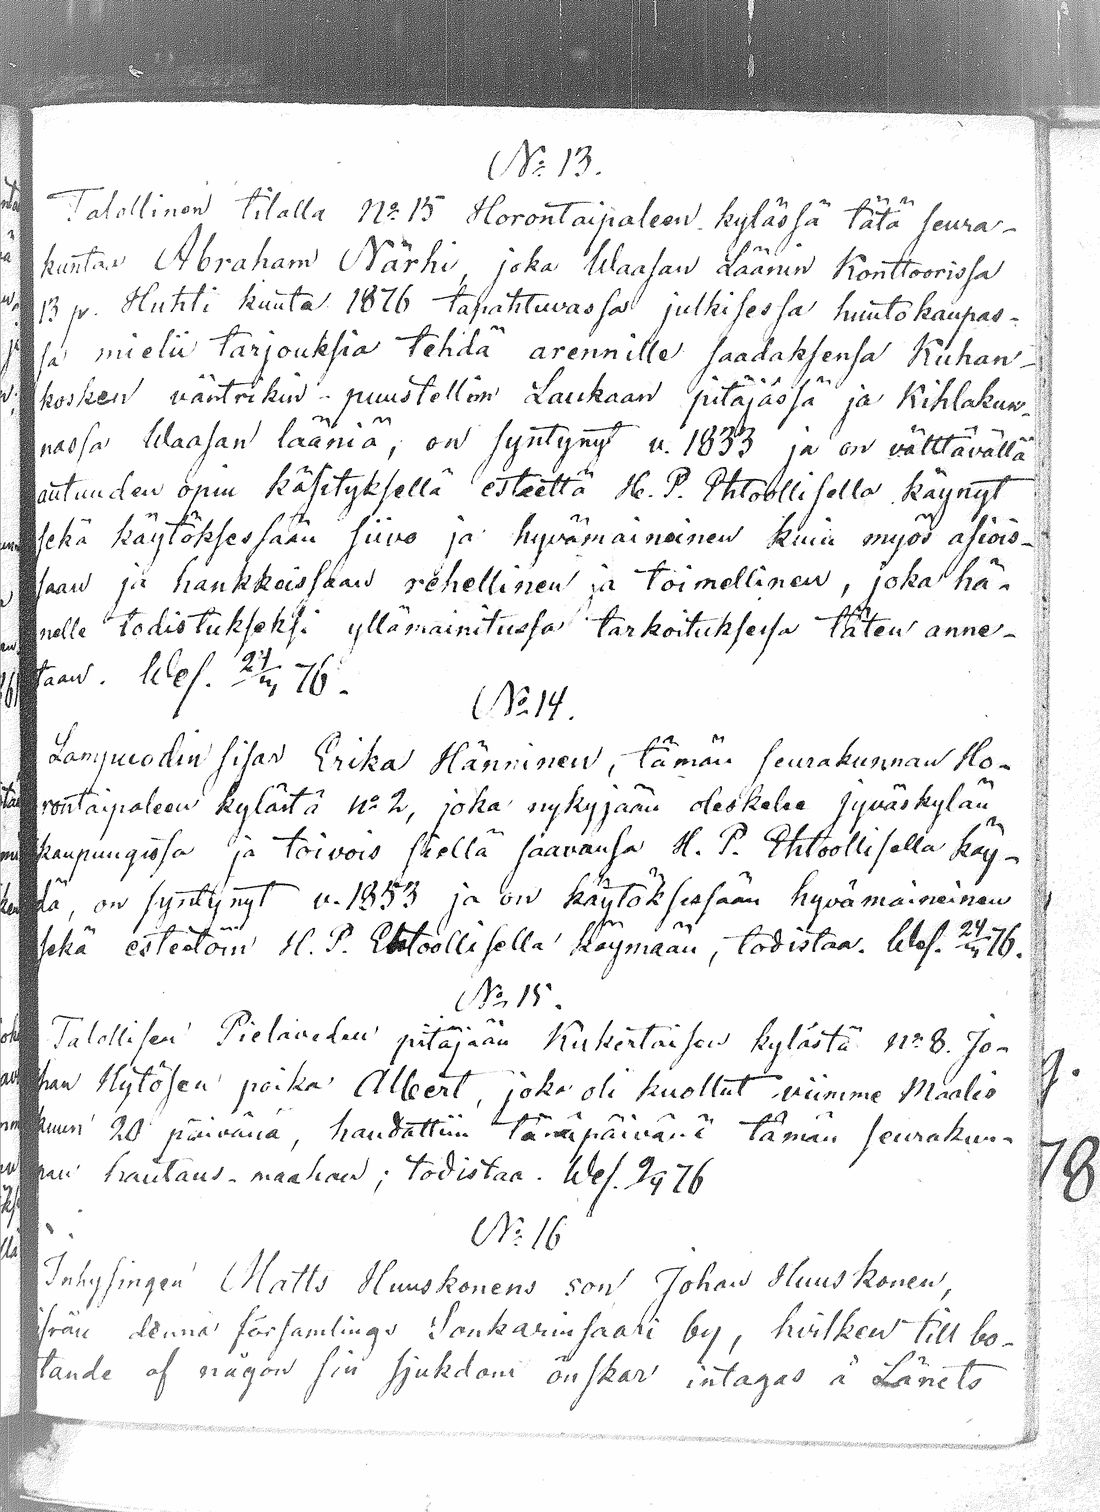 No 13.
Talollinen tilalla No 15 Horontaipaleen kylässä tätä seura-
kuntaa Abraham Närhi, joka Waasan Läänin Konttoorissa
13 p. Huhti kuuta 1876 tapahtuvassa julkisessa huutokaupas-
sa mielii tarjouksia tehdä arennille saadaksensa Kuhan-
kosken väntrikin-puustellin Laukaan pitäjässä ja Kihlakun-
nassa Waasan lääniä, on syntynyt v. 1833 ja on välttävällä
autuuden opin käsityksellä esteettä H. P. Ehtoollisella käynyt
sekä käytöksessään siivo ja hyvämaineinen kuin myös asiois-
saan ja hankkeissaan rehellinen ja toimellinen, joka hä-
nelle todistukseksi yllämainitussa tarkoituksessa täten anne-
taan. Wes. 24/3 76.
No 14.
Lampuodin sisar Erika Hänninen, tämän seurakunnan Ho-
rontaipaleen kylästä No 2, joka nykyjään oleskelee Jyväskylän
kaupungissa ja toivois siellä saavansa H. P. Ehtoollisella käy-
dä, on syntynyt v. 1853 ja on käytöksessään hyvämaineinen
sekä esteetöin H. P. Ehtoollisella käymään, todistaa. Wes. 24/3 76.
No 15.
Talollisen Pielaveden pitäjään Kukertaisen kylästä No 8. Jo-
han Hytösen poika Albert, joka oli kuollut viimme Maalis
kuun 20 päivänä, haudattiin tänäpäivänä tämän seurakun-
nan hautaus-maahan; todistaa. Wes. 2/4 76
No 16
Inhysingen Matts Huuskonens son Johan Huuskonen,
ifrån denna församlings Sonkarinsaari by, hvilken till bo-
tande af någon sin sjukdom önskar intagas å Länets
78